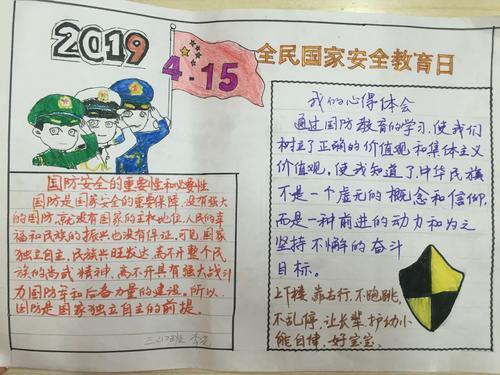 2019
4.15
全民国家安全教育日
国防安全的重要性和必性
国防是国家安全的重要保障,没有强大
的国防,就没有国家的主权地位,人民的幸
福和民族的振兴也没有保证,可见国家
独立自主,民族兴旺发达,离不开整个民
族的尚武精神,离不开具有强大战斗
力国防军和后备力量的建设,所以,
国防是国家独立自主的前提。
我的心得体会
通过国防教育的学习,使我们
树立了正确的价值观和集体主义
价值观,使我知道了,中华民族
不是一个虚无的概念和信仰,
而是一种前进的动力和为之
坚持不懈的奋斗
目标。
上下楼,靠右行,不跑跳,
不乱停,让长辈,护幼小
能自律,好宝宝。